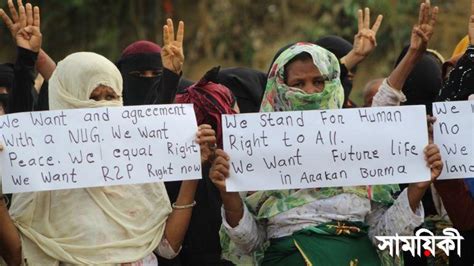 We Want and agreement
With a NUG. We Want
Peace. We equal Right
We Want R2P Right now
We Stand For Human
Right to All.
We Want Future life
in Arakan Burma
সাময়িকী